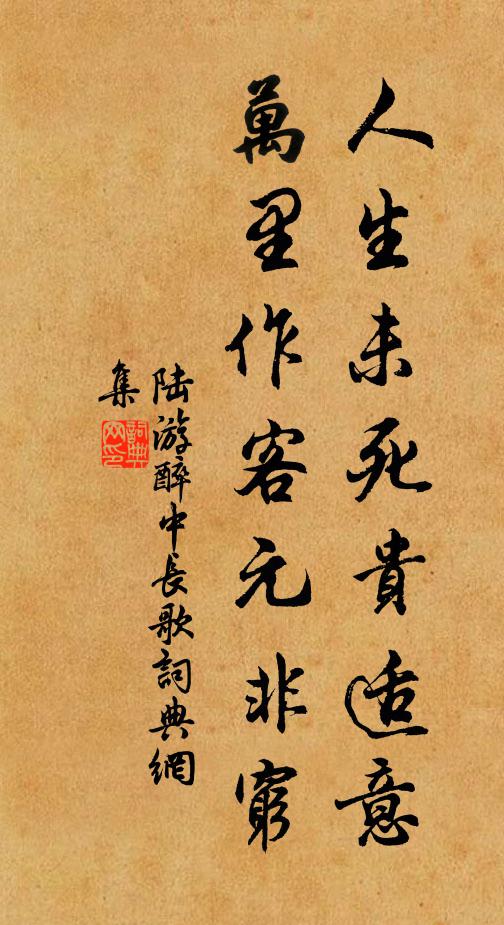 人生未死貴适意
萬里作客元非窮
陆游醉中長歌詞典網
集
詞典網印